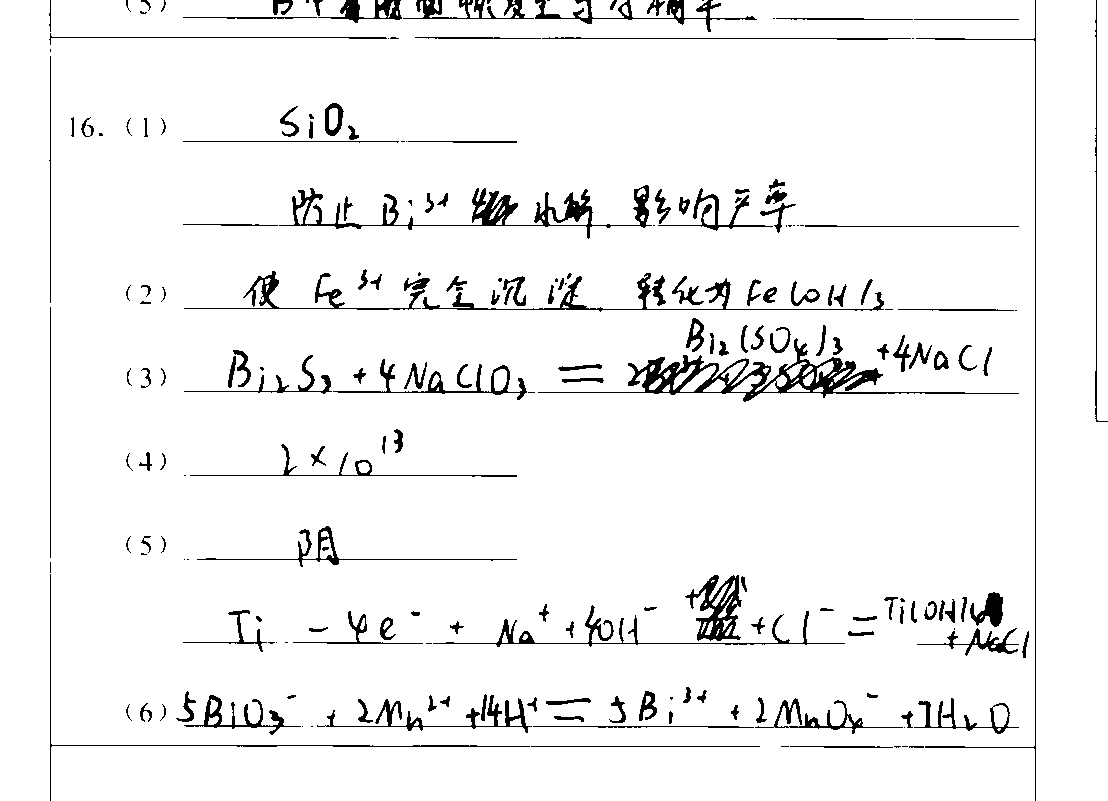 (5)
16. (1) SiO₂
防止Bi³⁺水解.影响产率
(2) 使Fe³⁺完全沉淀.转化为Fe(OH)₃
(3) Bi₂S₃+4NaClO₃=Bi₂(SO₄)₃+4NaCl
(4) 2×10¹³
(5) 阴
Ti-4e⁻+Na⁺+4OH⁻+Cl⁻=Ti(OH)₄+NaCl
(6) 5BiO₃⁻+2Mn²⁺+14H⁺=5Bi³⁺+2MnO₄⁻+7H₂O